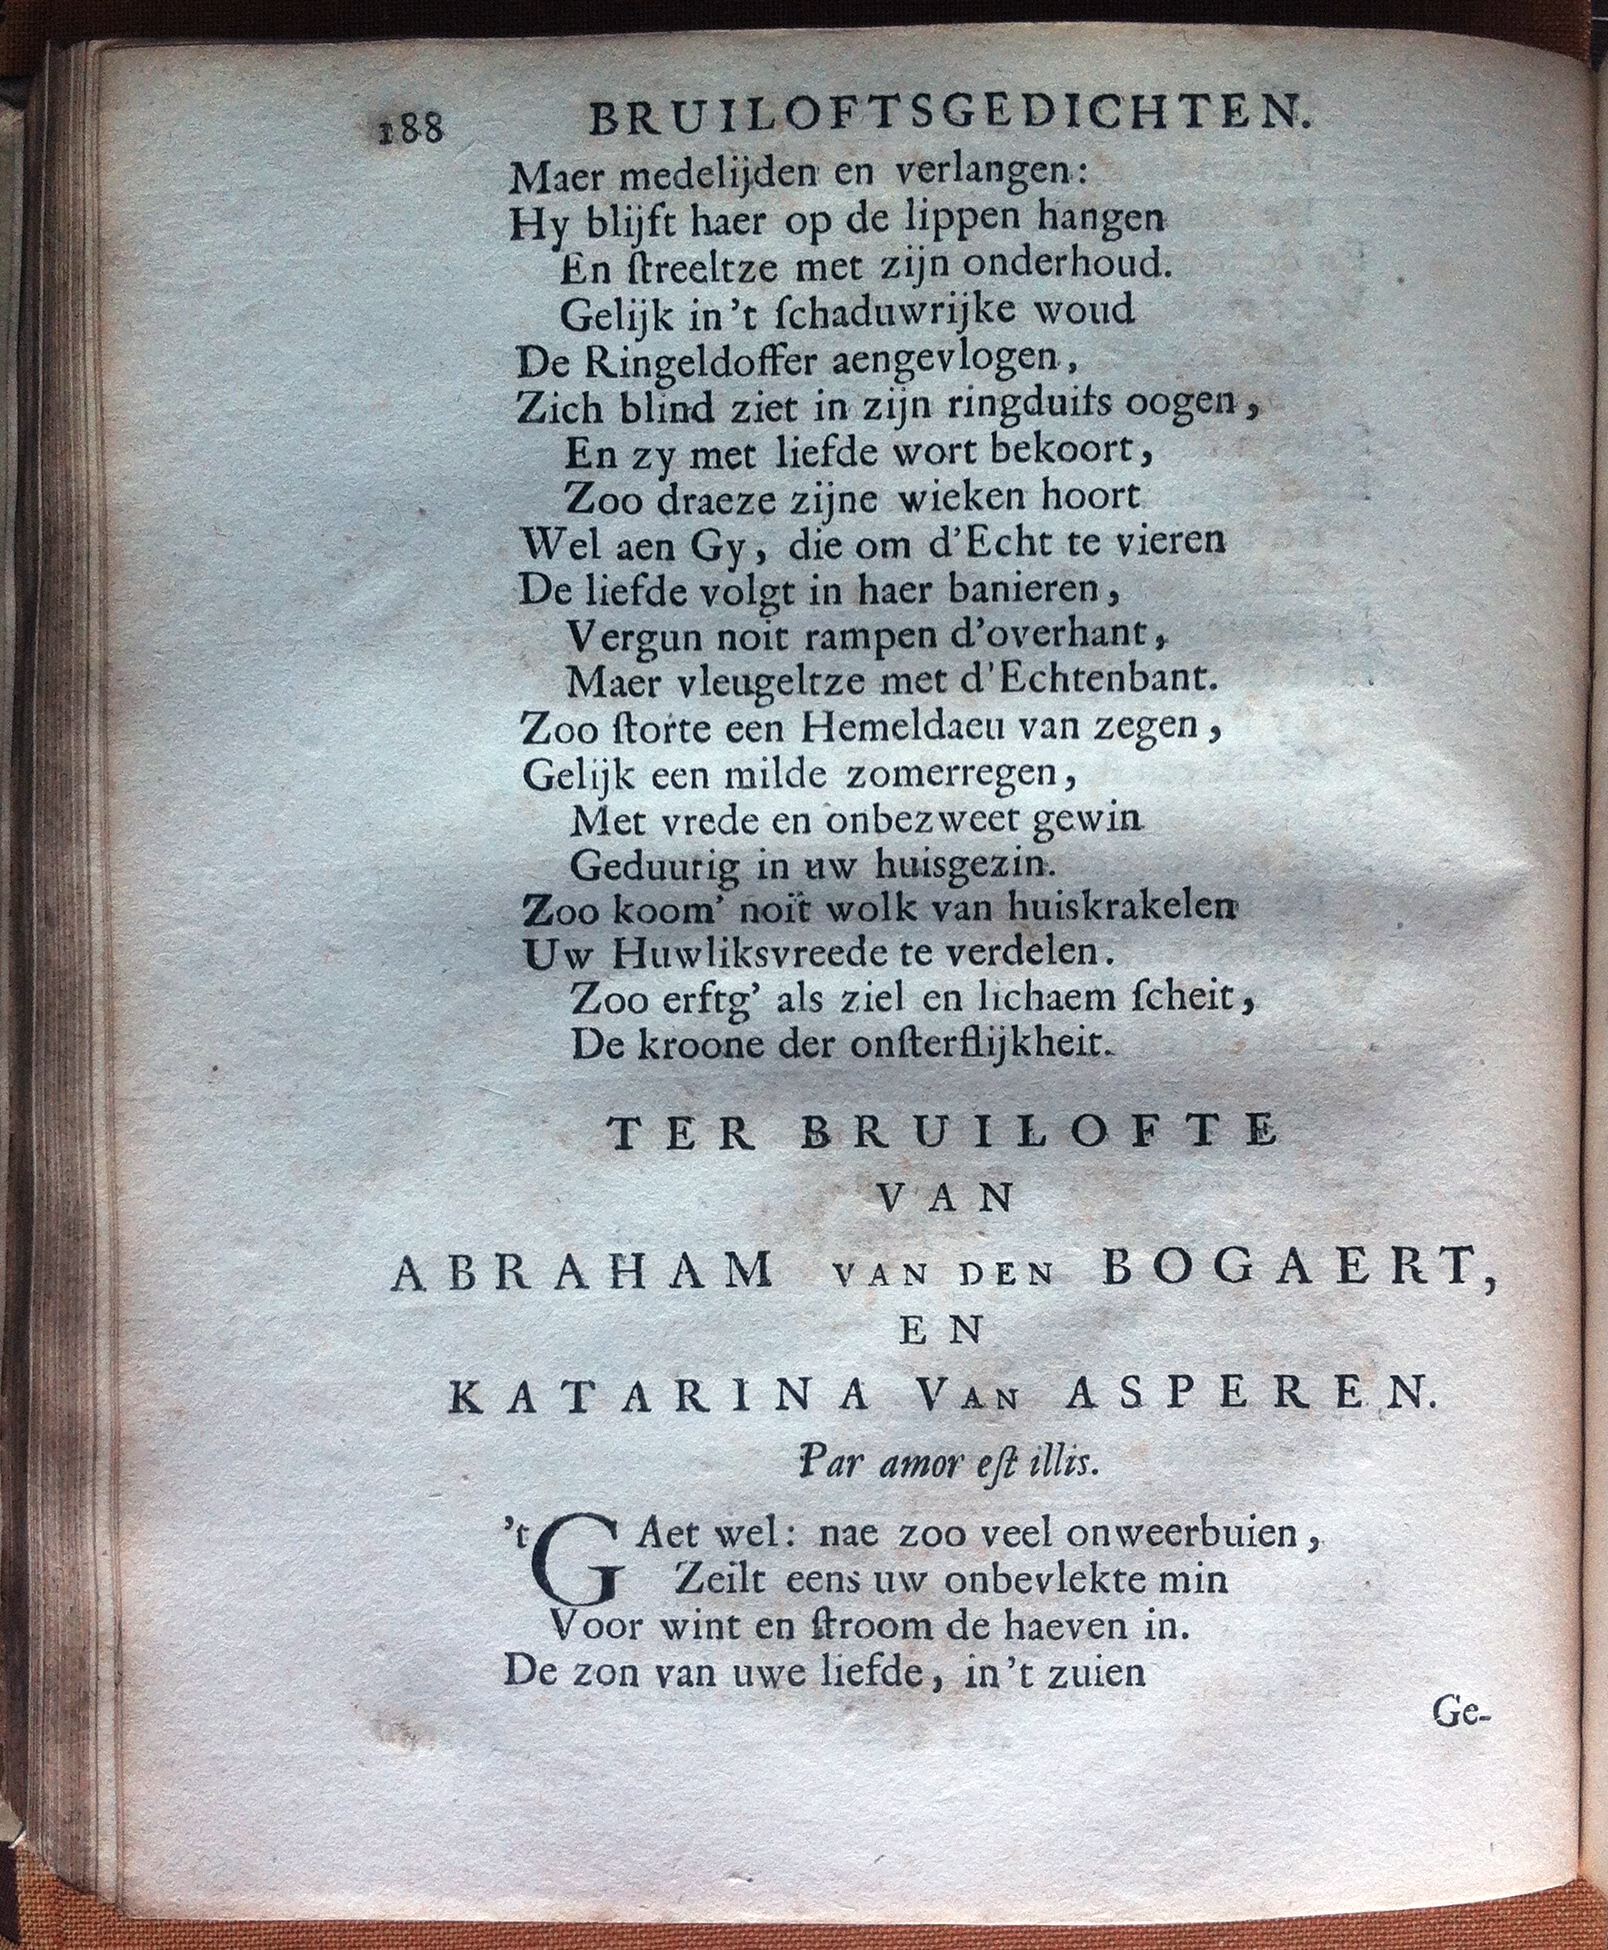 188 BRUILOFTSGEDICHTEN.
Maer medelijden en verlangen:
Hy blijft haer op de lippen hangen
En ſtreeltze met zijn onderhoud.
Gelijk in't ſchaduwrijke woud
De Ringeldoffer aengevlogen,
Zich blind ziet in zijn ringduifs oogen,
En zy met liefde wort bekoort,
Zoo draeze zijne wieken hoort
Wel aen Gy, die om d'Echt te vieren
De liefde volgt in haer banieren,
Vergun noit rampen d'overhant,
Maer vleugeltze met d'Echtenbant.
Zoo ſtorte een Hemeldaeu van zegen,
Gelijk een milde zomerregen,
Met vrede en onbezweet gewin
Geduurig in uw huisgezin.
Zoo koom' noit wolk van huiskrakelen
Uw Huwliksvreede te verdelen.
Zoo erftg' als ziel en lichaem ſcheit,
De kroone der onſterflijkheit.
TER BRUILOFTE
VAN
ABRAHAM VAN DEN BOGAERT,
EN
KATARINA VAN ASPEREN.
Par amor eſt illis.
't GAet wel: nae zoo veel onweerbuien,
Zeilt eens uw onbevlekte min
Voor wint en ſtroom de haeven in.
De zon van uwe liefde, in't zuien
Ge-